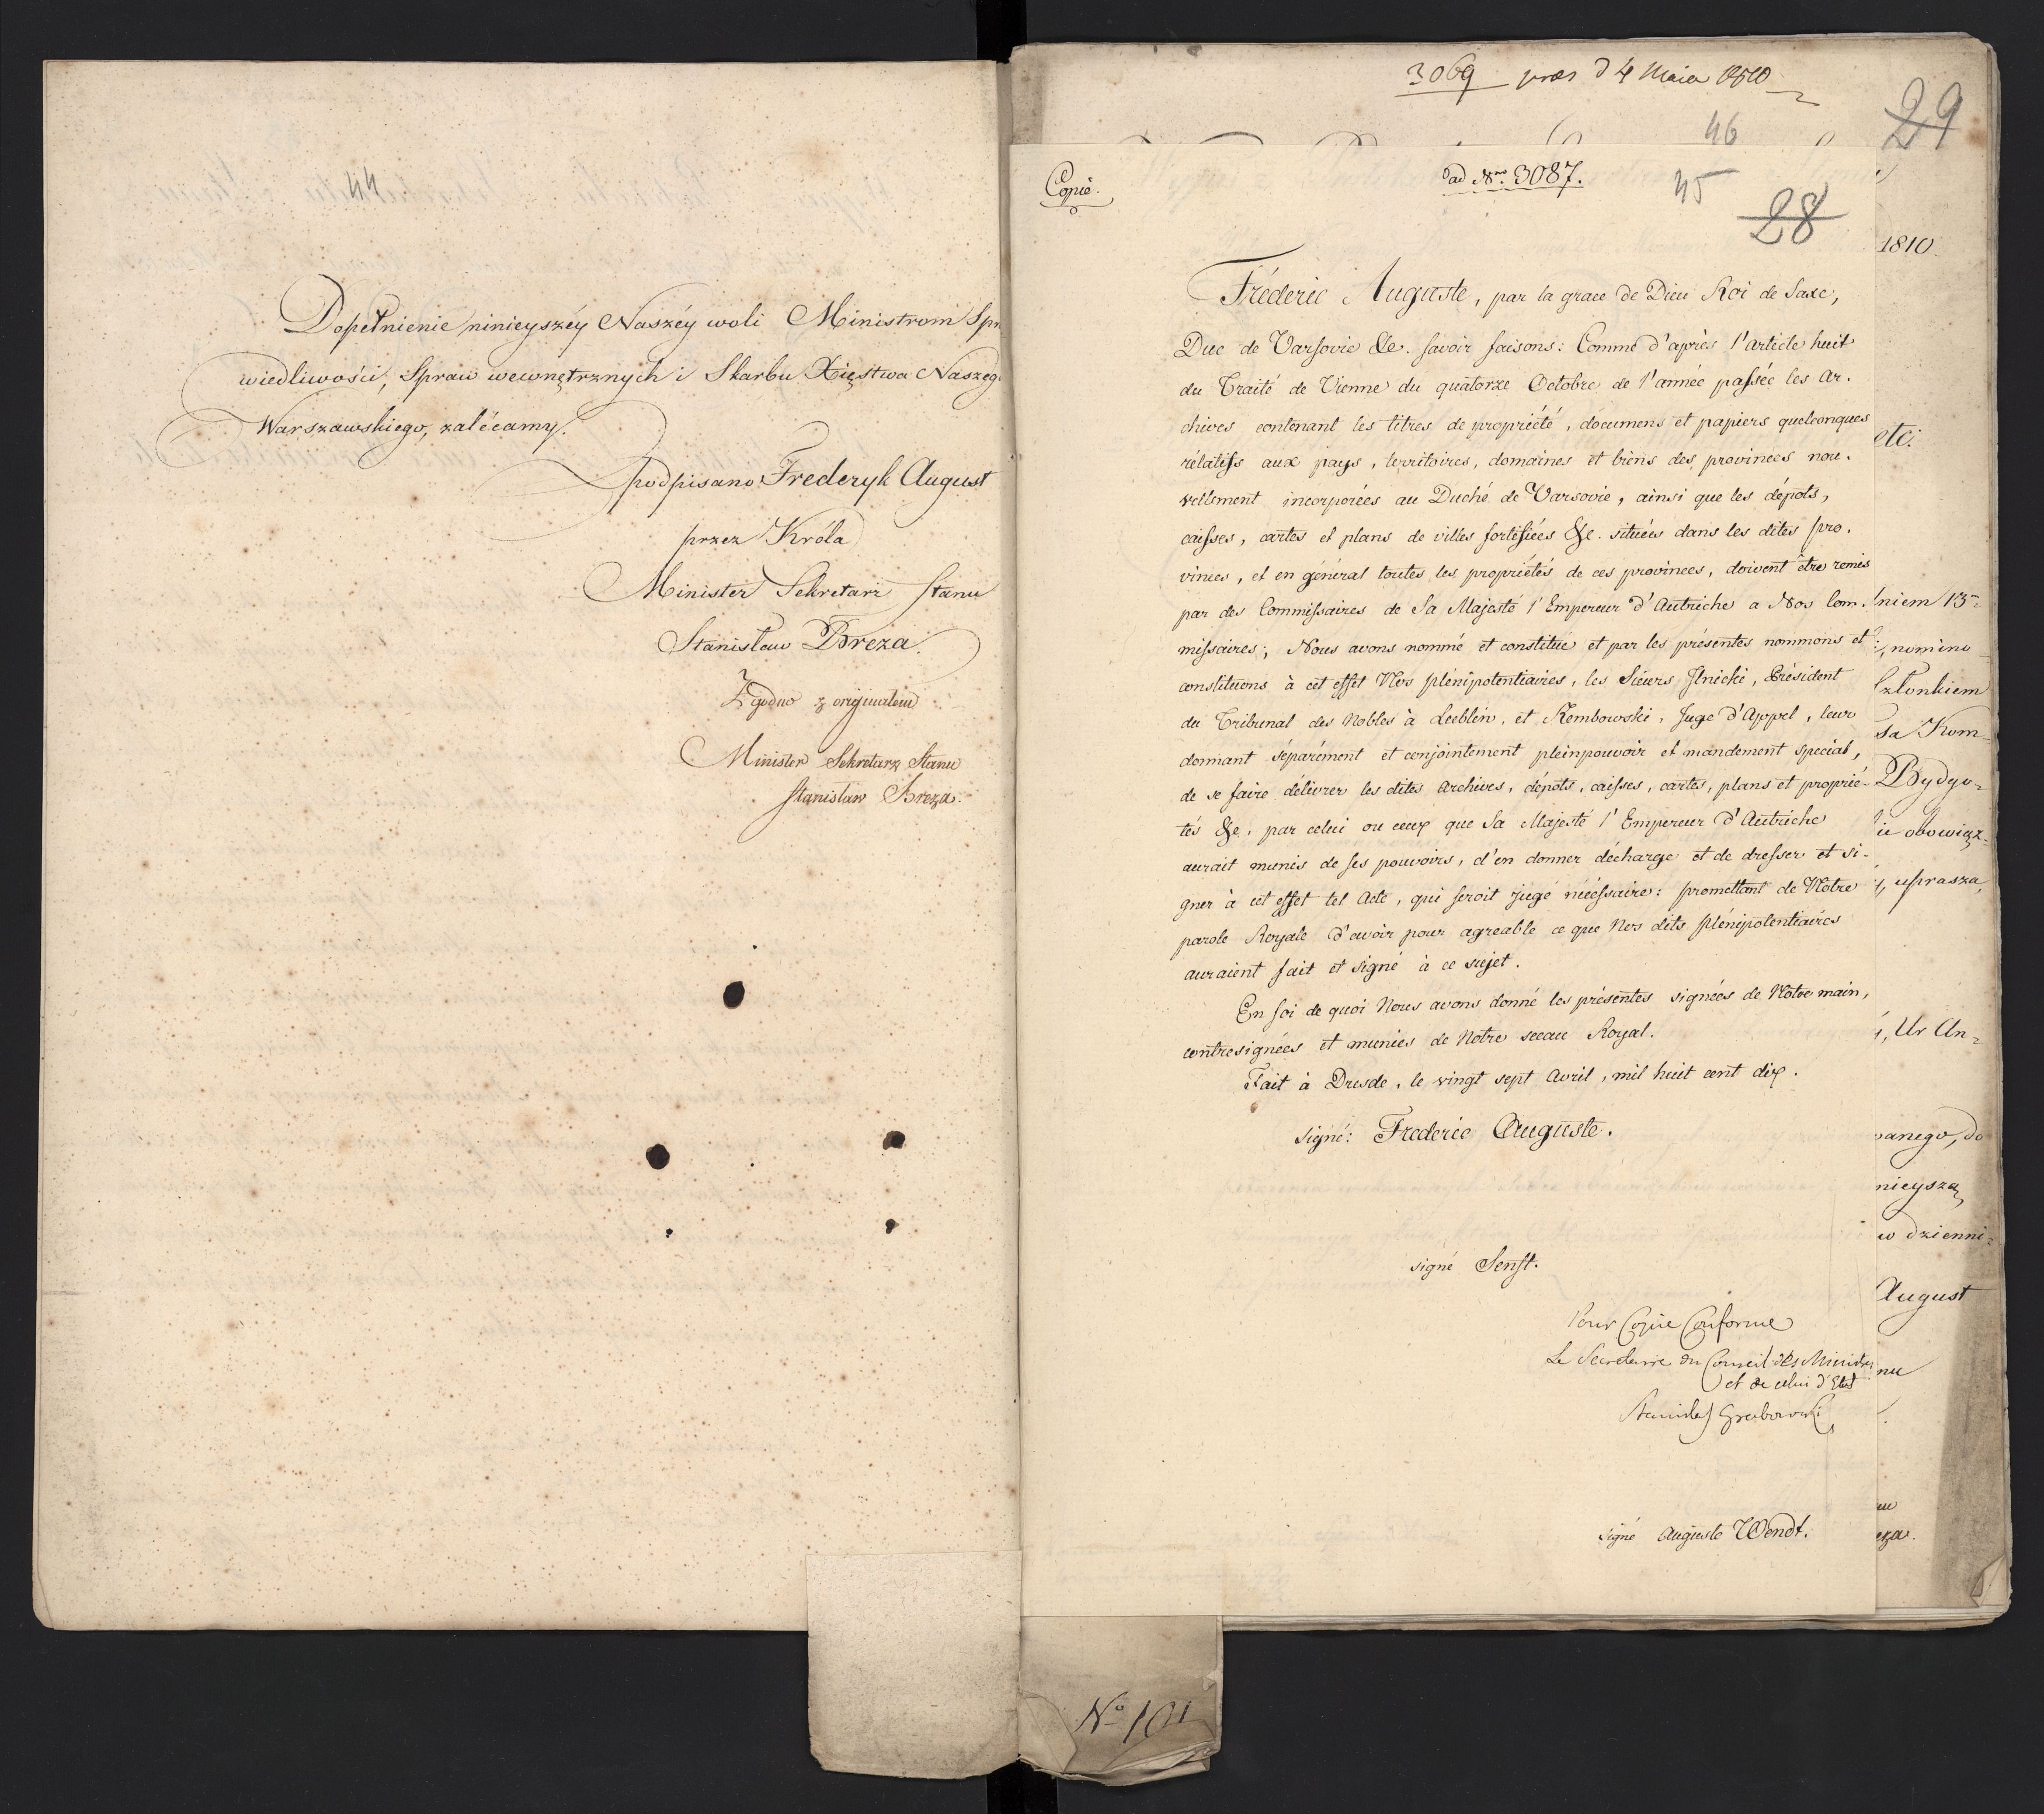 44
Dopełnienie ninieyszéy Naszéy woli Ministrom Spra
wiedliwości, Spraw wewnętrznych i Skarbu Xięstwa Naszego
Warszawskiego, zalécamy.
podpisano Frederyk August
przez Króla
Minister Sekretarz Stanu
Stanisław Breza.
Zgodno z originałem
Minister Sekretarz Stanu
Stanisław Breza.
3069 praes d 4 Maia 1810
29
46
Copie.
ad Nrum 3087.
45
28
Fréderic Auguste, par la grace de Dieu Roi de Saxe,
Duc de Varsovie &c. savoir faisons: Comme d'après l'article huit
du Traité de Vienne du quatorze Octobre de l'année passée les Ar.
chives contenant les titres de propriété, documens et papiers quelconques
rélatifs aux pays, territoires, domaines et biens des provinces nou.
vellement incorporées au Duché de Varsovie, ainsi que les dépots,
caisses, cartes et plans de villes fortifiées &c. situées dans les dites pro.
vinces, et en général toutes les propriétés de ces provinces, doivent être remis
par des Commissaires de Sa Majesté l'Empereur d'Autriche a Nos Com.
missaires; Nous avons nommé et constitué et par les présentes nommons et
constituons à cet effet Nos plénipotentiaires, les Sieurs Ilnicki, Président
du Tribunal des Nobles à Lublin, et Rembowski, Juge d'Appel, leur
donnant séparément et conjointement pleinpouvoir et mandement special,
de se faire délivrer les dites Archives, dépots, caisses, cartes, plans et proprié-
tés &c, par celui ou ceux que Sa Majesté l'Empereur d'Autriche
aurait munis de ses pouvoirs, d'en donner décharge et de dresser et si-
gner à cet effet tel Acte, qui seroit jugé nécessaire: promettant de Notre
parole Royale d'avoir pour agreable ce que Nos dits plénipotentiaires
auraient fait et signé à ce sujet.
En foi de quoi Nous avons donné les présentes signées de Notre main,
contresignées et munies de Notre sceau Royal.
Fait à Dresde, le vingt sept Avril, mil huit cent dix.
signé: Frederic Auguste.
signé Senft.
Pour Copie Conforme
Le Secretaire du Conseil des Ministres
et de celui d'Etat
Stanislas Grabowski
signé Auguste Wendt.
1810.
etc.
niem 13
nomino
Członkiem
sa Kom=
Bydgo=
ie obowiąz=
, uprasza,
, Ur An=
wanego, do
nieysza
w dzienni=
August
nu
eza.
No 101